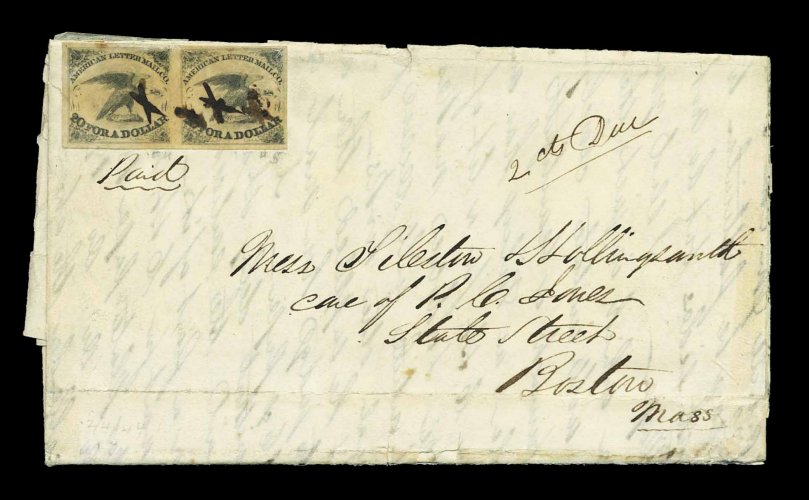 AMERICAN LETTER MAIL CO.
20 FOR A DOLLAR
AMERICAN LETTER MAIL CO.
FOR A DOLLAR
Paid
2 cts Due
Mess Tileston & Hollingsworth
care of P. C. Jones
State Street
Boston
Mass